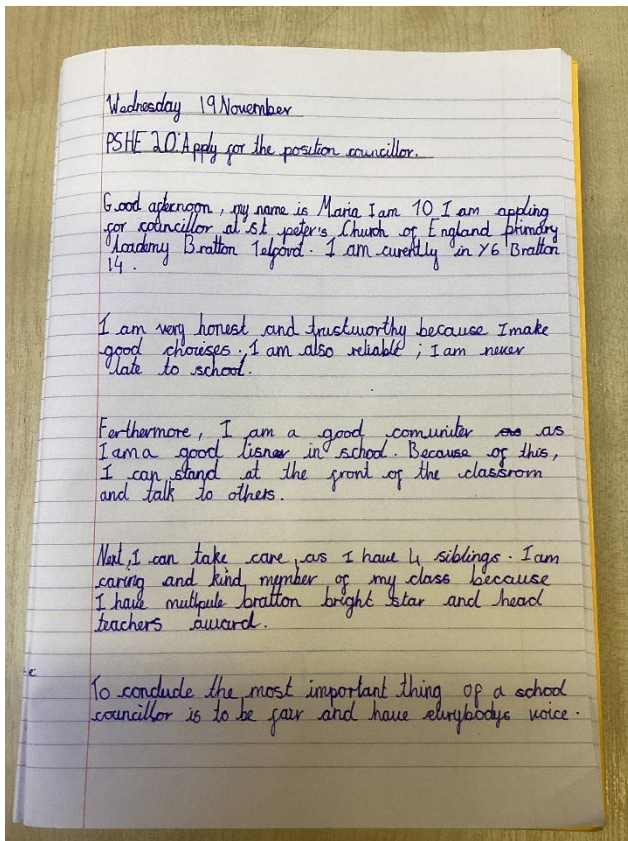 Wednesday 19 November
PSHE 20: Apply for the position councillor.
Good afternoon, my name is Maria I am 10 I am appling
for councillor at st peter's Church of England primary
Academy Bratton Telford. I am curently in Y6 Bratton
14.
I am very honest and trustworthy because I make
good choises. I am also reliable ; I am never
late to school.
Ferthermore, I am a good comuniter as
I am a good lisner in school. Because of this,
I can stand at the front of the classrom
and talk to others.
Next, I can take care, as I have 4 siblings. I am
caring and kind member of my class because
I have multpule bratton bright star and head
teachers award.
To conclude the most important thing of a school
councillor is to be fair and have eurybodys voice.